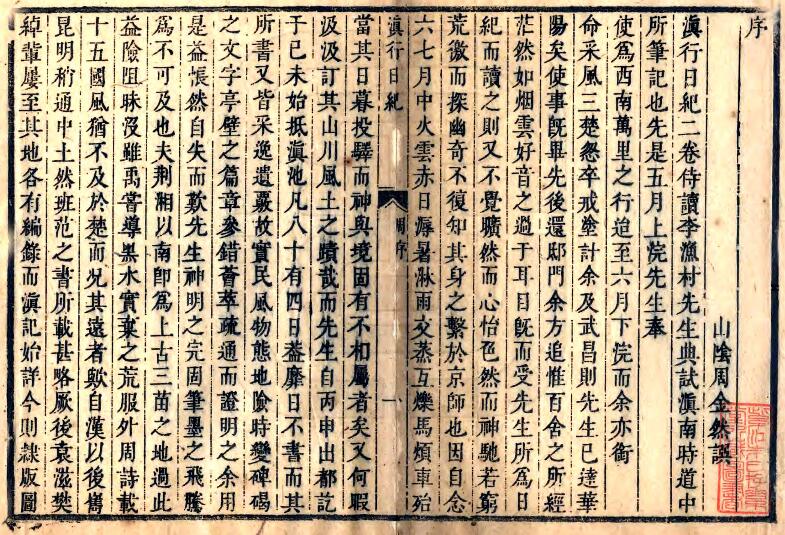 序
山陰周金然譔
滇行日紀二卷侍讀李漁村先生典試滇南時道中
所筆記也先是五月上浣先生奉
使爲西南萬里之行迨至六月下浣而余亦銜
命采風三楚怱卒戒塗計余及武昌則先生已達華
陽矣使事旣畢先後還邸門余方追惟百舍之所經
茫然如烟雲好音之過于耳目旣而受先生所爲日
紀而讀之則又不覺曠然而心怡色然而神馳若窮
荒徼而探幽奇不復知其身之繫於京師也因自念
六七月中火雲赤日溽暑淋雨交蒸互爍馬煩車殆
滇行日紀
周序
一
當其日暮投驛而神與境固有不相屬者矣又何暇
汲汲訂其山川風土之蹟哉而先生自丙申出都訖
于己未始抵滇池凡八十有四日蓋靡日不書而其
所書又皆采逸遺覈故實民風物態地險時變碑碣
之文字亭壁之篇章參錯薈萃疏通而證明之余用
是益悵然自失而歎先生神明之完固筆墨之飛騰
爲不可及也夫荆湘以南卽爲上古三苗之地過此
益險阻昧沒雖禹嘗導黑水實棄之荒服外周詩載
十五國風猶不及於楚而况其遠者歟自漢以後雟
昆明稍通中土然班范之書所載甚略厥後袁滋樊
綽輩屢至其地各有編錄而滇記始詳今則隷版圖